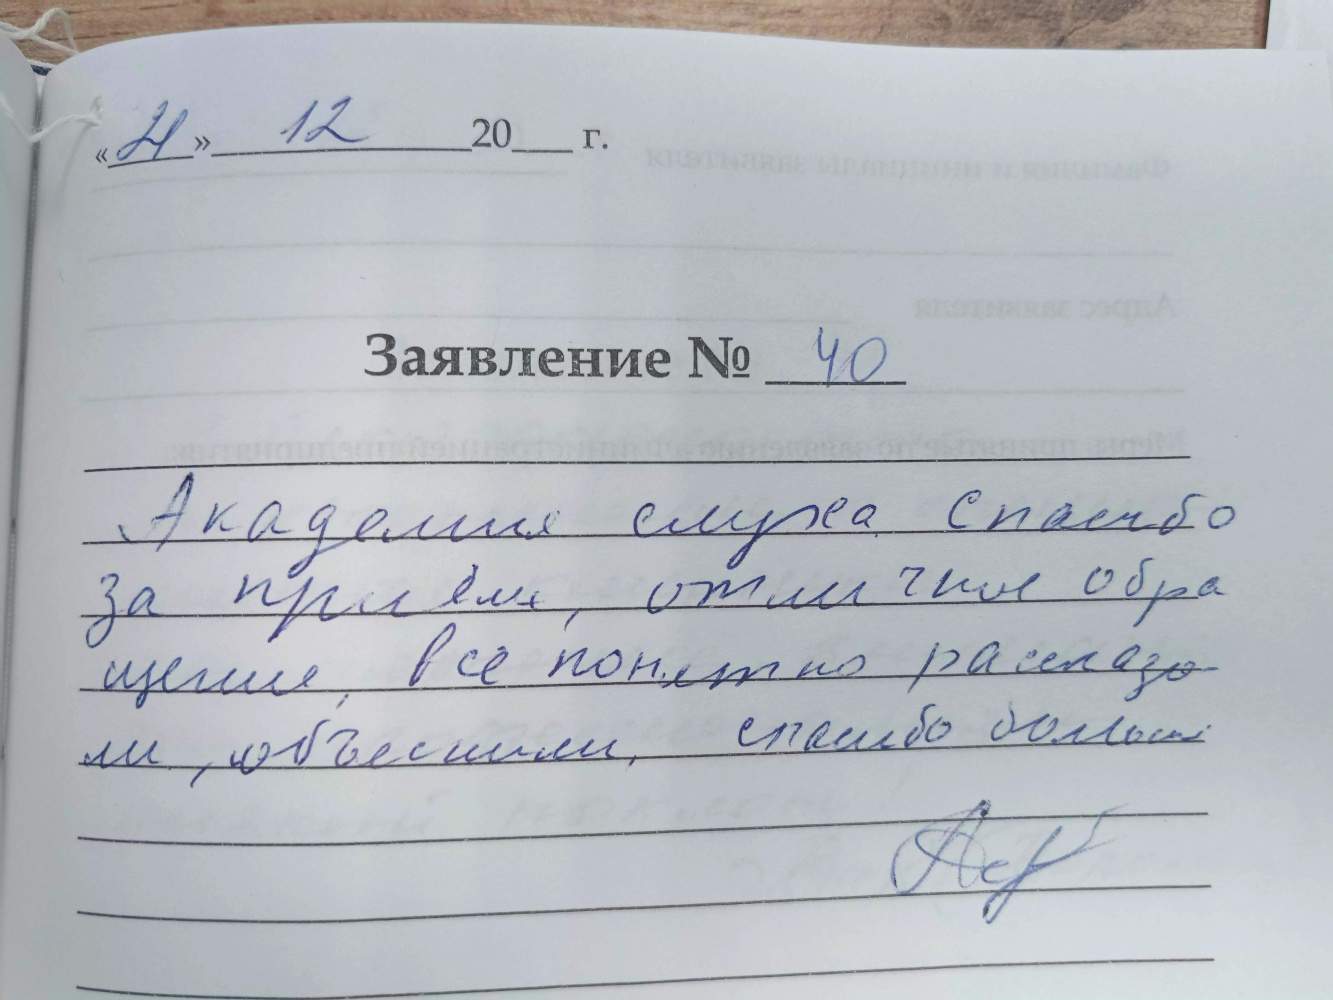 «21» 12 20___ г.
Заявление № 40
Академия слуха Спасибо
за приём, отличное обра
щение, все понятно рассказа
ли, объяснили, спасибо большое